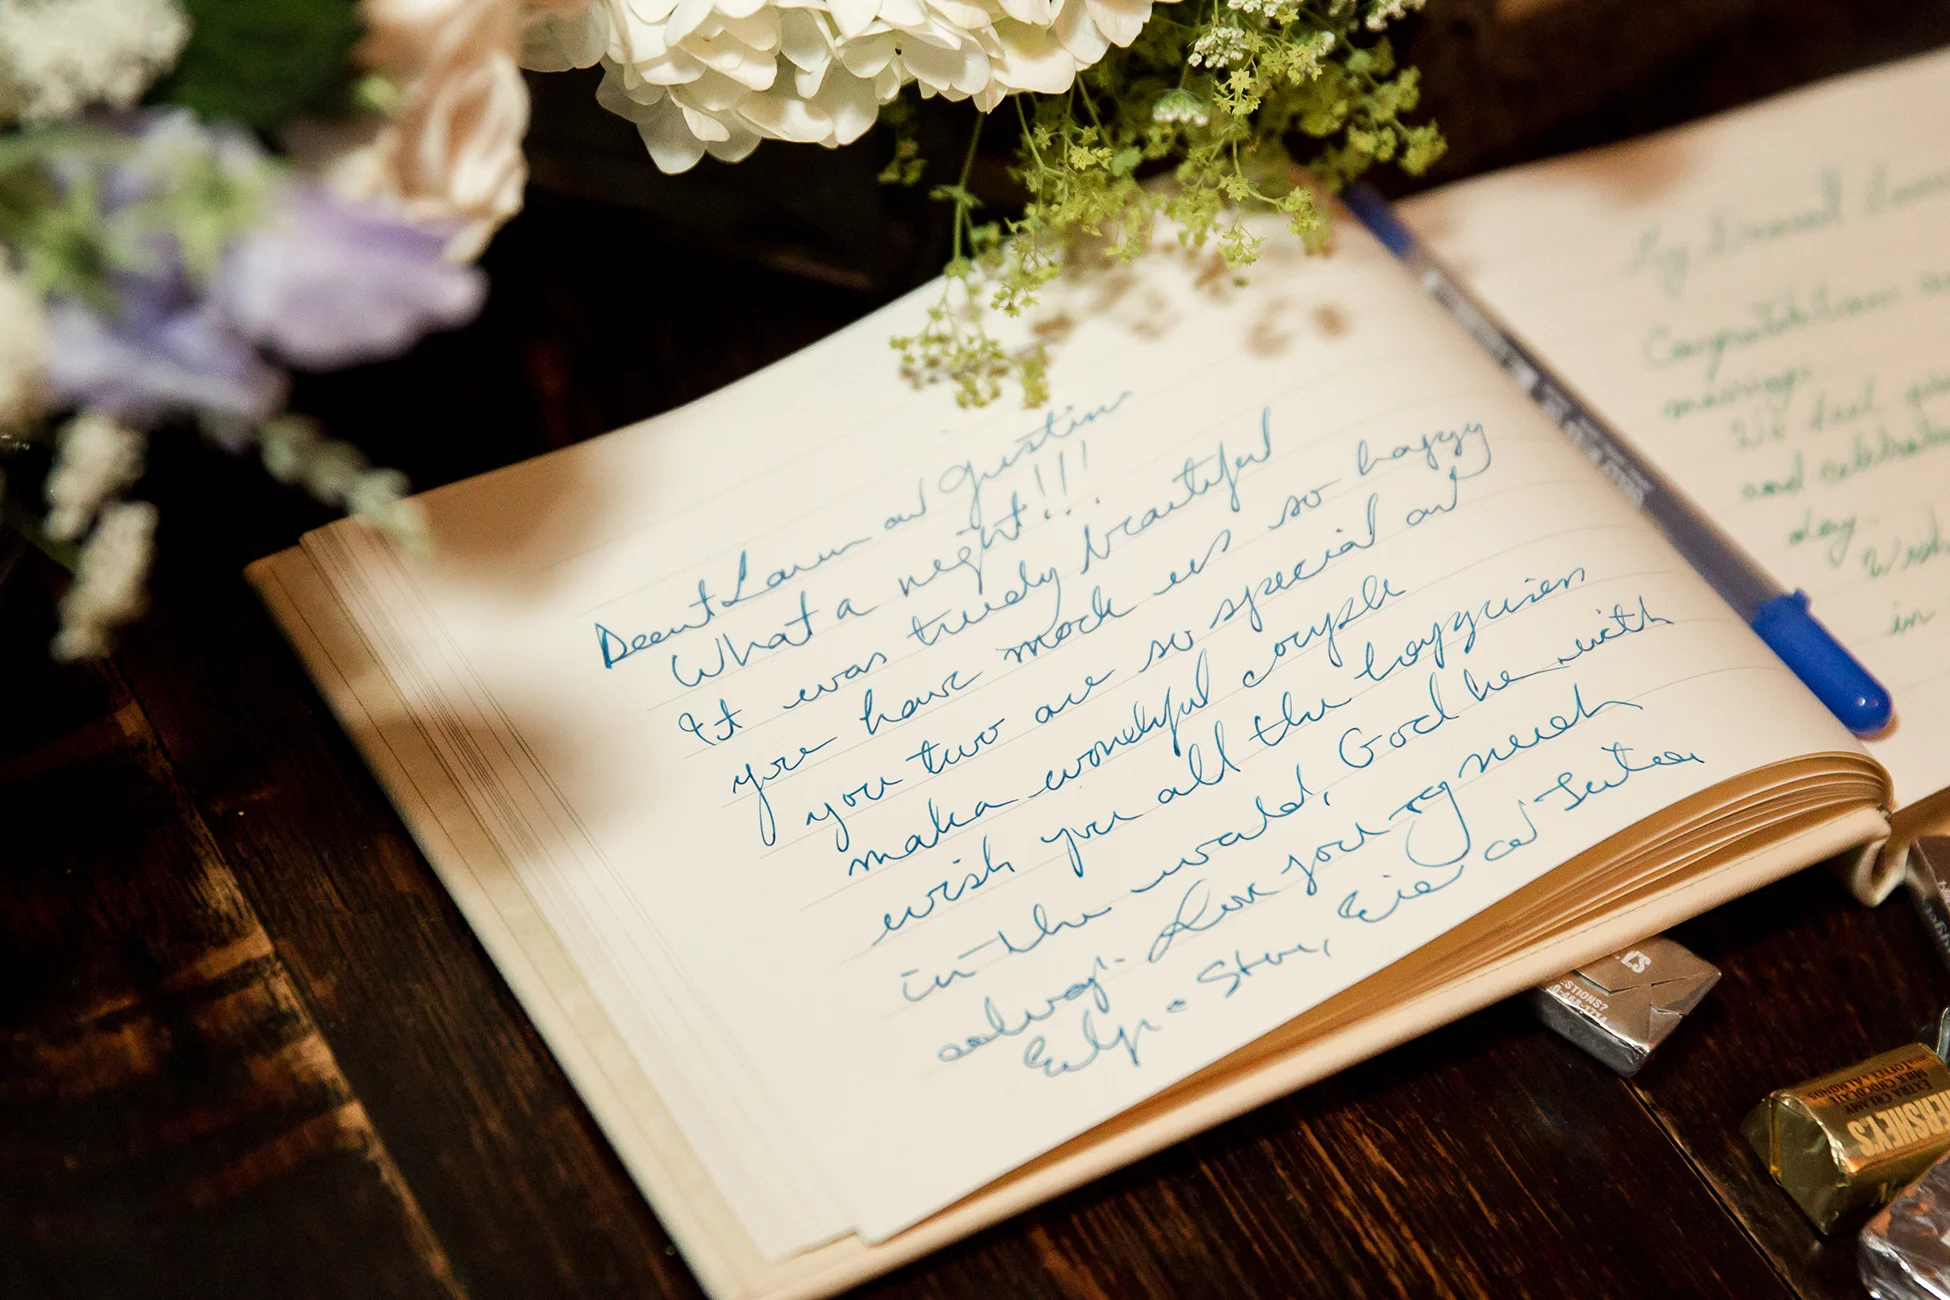 Dearest Lauren and Justin
What a night!!!
It was truely beautiful
you have made us so happy
you two are so special and
make a wonderful couple
wish you all the happiness
in the world, God be with
always. Love you very much
Steve, Eric and
My Dearest
Congratulations
marriage
We feel
and celebrate
day.
in
HERSHEY'S
EXTRA CREAMY
MILK CHOCOLATE
TOFFEE & ALMONDS